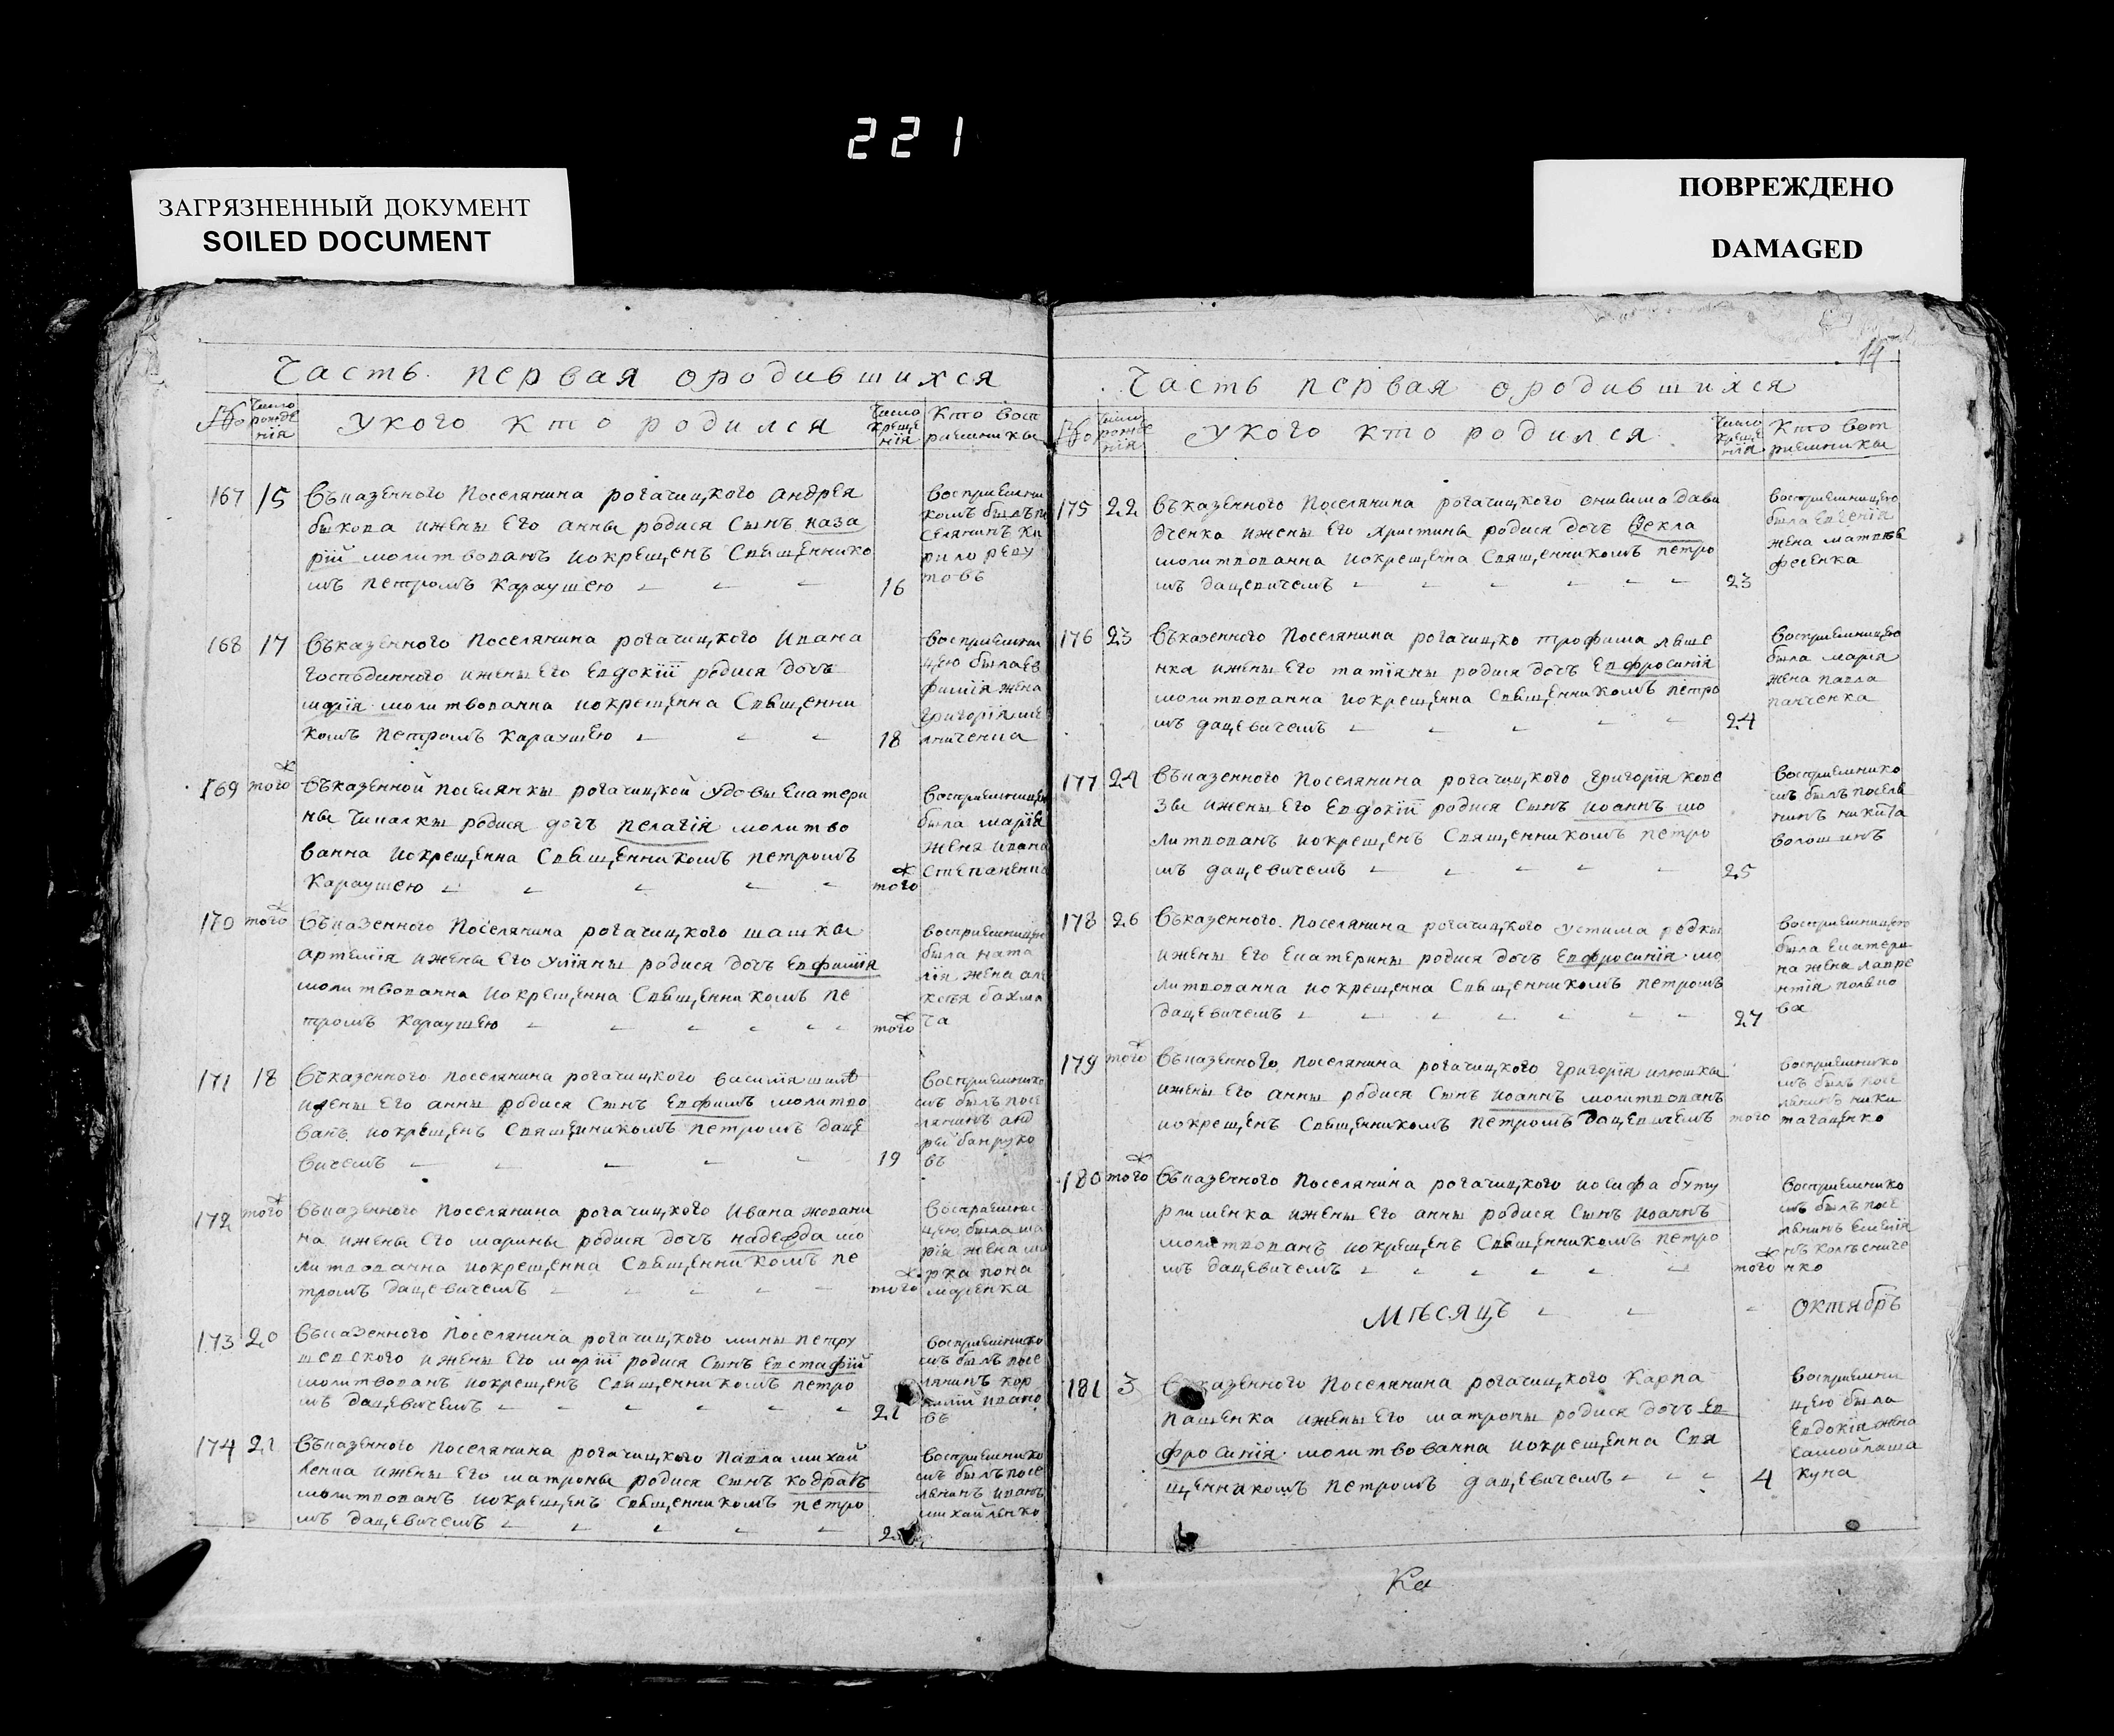 221
ЗАГРЯЗНЕННЫЙ ДОКУМЕНТ
SOILED DOCUMENT
ПОВРЕЖДЕНО
DAMAGED
Часть первая ородившихся
№ Число рожде нїя
Укого кто родился
Число креще нїя
Кто восп риемники
167 15
Вьказенного Поселянина рогачицкого андрея
быкова ижены Его анны родися Сынъ наза
рїй молитвованъ иокрещенъ Свѣщеннико
мъ петромъ Караушею
16
Восприемни
комъ былъ по
селянинъ Ки
рило реву
товъ
168 17
Вьказенного Поселянина рогачицкого Ивана
господинного ижены Его Евдокїи родися дочъ
марїя молитвованна иокрещенна Свѣщенни
комъ петромъ Караушею
18
Восприемни
цею была Ев
фимїя жена
григорїя ме
лниченка
169 того
Вьказенной поселянки рогачицкой удовы Екатери
ны Чикалки родися дочъ пелагїя молитво
ванна иокрещенна Свѣщенникомъ петромъ
Караушею
того
Восприемницею
была марїя
жена ивана
Степаненка
170 того
Вьказенного Поселянина рогачицкого шашки
артемїя ижены Его улїяны родися дочъ Евфимїя
молитвованна иокрещенна Свѣщенникомъ пе
тромъ Караушею
того
восприемницею
была ната
лїя жена але
ксѣя бахма
ча
171 18
Вьказенного поселянина рогачицкого василїя
ижены Его анны родися Сынъ Евфимъ молитво
ванъ иокрещенъ Священникомъ петромъ даце
вичемъ
19
Восприемнико
мъ былъ посе
лянинъ анд
рѣй
въ
172 того
Вьказенного поселянина рогачицкого Ивана жовани
на ижены Его марины родися дочъ надежда мо
литвованна иокрещенна Свѣщенникомъ пе
тромъ дацевичемъ
того
Восприемни
цею была ма
рїя жена ма
рка пона
маренка
173 20
Вьказенного Поселянина рогачицкого мины петру
шевского ижены Его марїи родися Сынъ Евстафїй
молитвованъ иокрещенъ Свѣщенникомъ петро
мъ дацевичемъ
21
Восприемнико
мъ былъ посе
лянинъ кор
нилїй ивано
въ
174 21
Вьказенного поселянина рогачицкого Павла михай
ленка ижены Его матроны родися Сынъ кодратъ
молитвованъ иокрещенъ Свѣщенникомъ петро
мъ дацевичемъ
Восприемнико
мъ былъ посе
лѣнинъ иванъ
михайленко
14
Часть первая ородившихся
№ Число рожде нїя
Укого кто родился
Число креще нїя
Кто восп риемники
175 22
Вьказенного Поселянина рогачицкого онисима Дави
дченка ижены Его христины родися дочъ Ѳекла
молитвованна иокрещенна Священникомъ петро
мъ дацевичемъ
23
Восприемницею
была Евгенїя
жена матвѣя
фесенка
176 23
Вьказенного Поселянина рогачицко трофима ляше
нка ижены Его татїяны родися дочъ Евфросинїя
молитвованна иокрещенна Свѣщенникомъ петро
мъ дацевичемъ
24
Восприемницею
была марїя
жена павла
панченка
177 24
Вьказенного Поселянина рогачицкого григорїя кове
зы ижены Его Евдокїи родися Сынъ иоаннъ мо
литвованъ иокрещенъ Священникомъ петро
мъ дацевичемъ
25
Восприемнико
мъ былъ поселѣ
нинъ никита
волошинъ
178 26
Вьказенного Поселянина рогачицкого устима редки
ижены Его Екатерины родися дочъ Евфросинїя мо
литвованна иокрещенна Свѣщенникомъ петромъ
дацевичемъ
27
Восприемницею
была Екатери
на жена лавре
нтїя
ва
179 того
Вьказенного Поселянина рогачицкого григорїя илюшки
ижены Его анны родися Сынъ иоаннъ молитвованъ
иокрещенъ Свѣщенникомъ петромъ дацевичемъ
того
Восприемнико
мъ былъ посе
лѣнинъ ники
та гащенко
180 того
Вьказенного Поселянина рогачицкого иосифа буту
рлименка ижены Его анны родися Сынъ иоаннъ
молитвованъ иокрещенъ Свѣщенникомъ петро
мъ дацевичемъ
того
Восприемнико
мъ былъ посе
лѣнинъ Емелїя
нъ колѣсниче
нко
Мѣсяцъ Октябрь
181 3
Вьказенного Поселянина рогачицкого Карпа
пащенка ижены Его матроны родися дочъ Ев
фросинїя молитвованна иокрещенна Свя
щенникомъ петромъ дацевичемъ
4
Восприемни
цею была
Евдокїя жена
самойла ша
куна